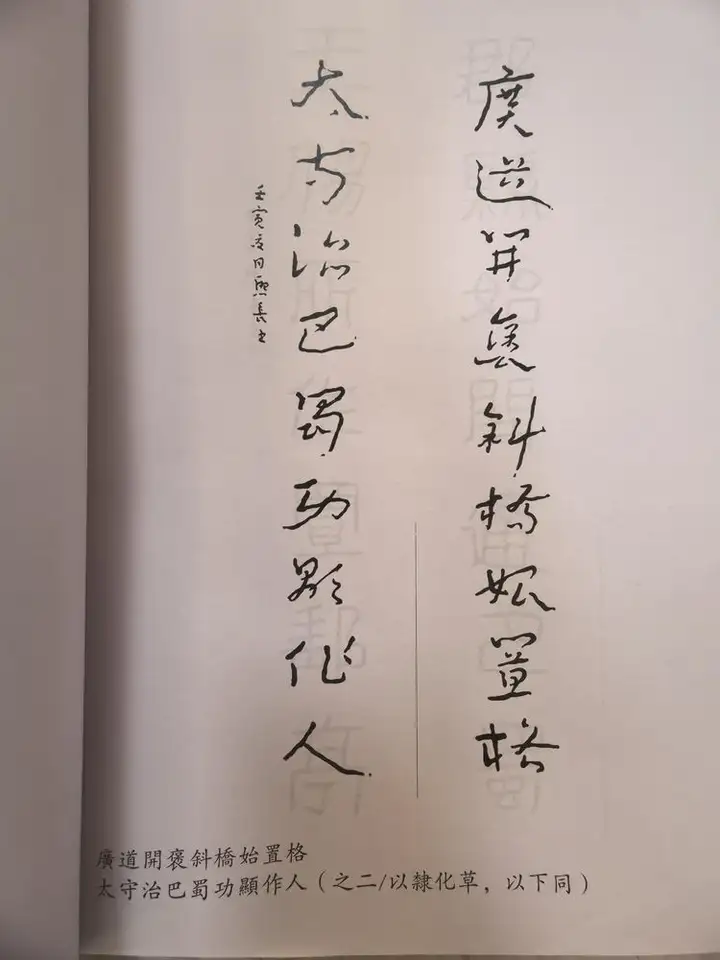 廣道開褒斜橋始置格
太守治巴蜀功顯作人
壬寅夏月熙長書
廣道開褒斜橋始置格
太守治巴蜀功顯作人（之二/以隸化草，以下同）